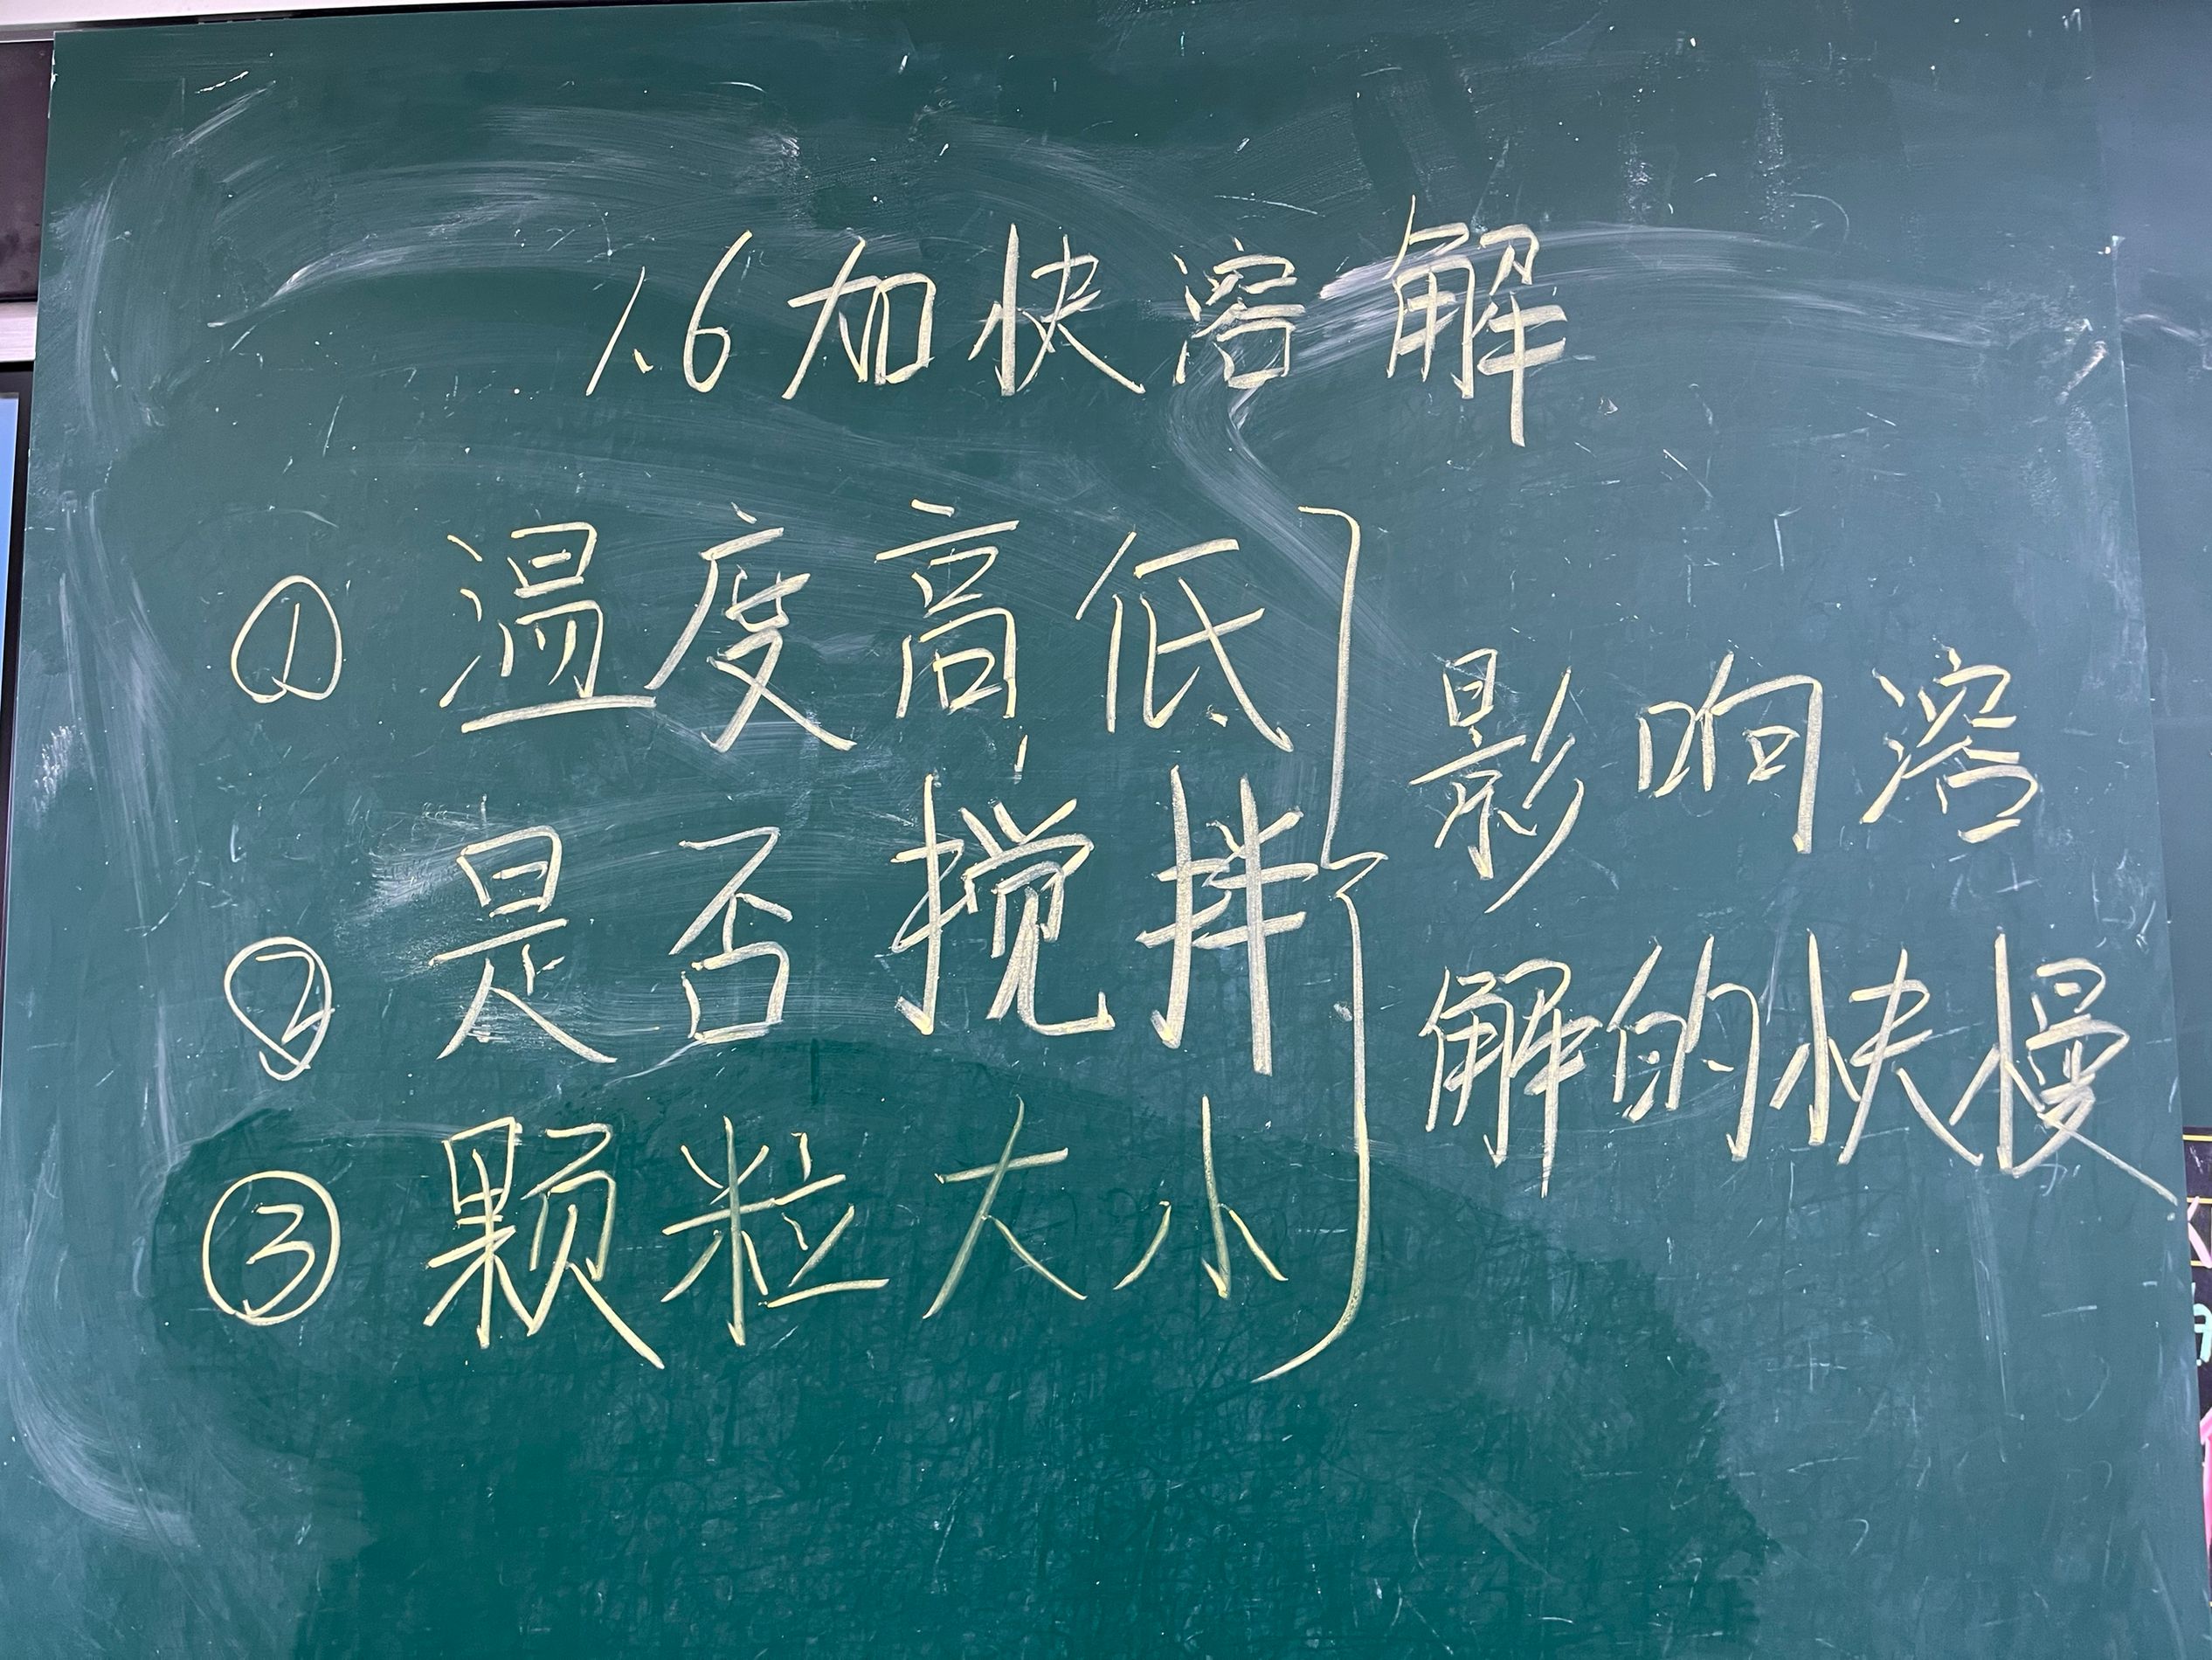 1.6加快溶解
① 温度高低
② 是否搅拌
③ 颗粒大小
影响溶
解的快慢